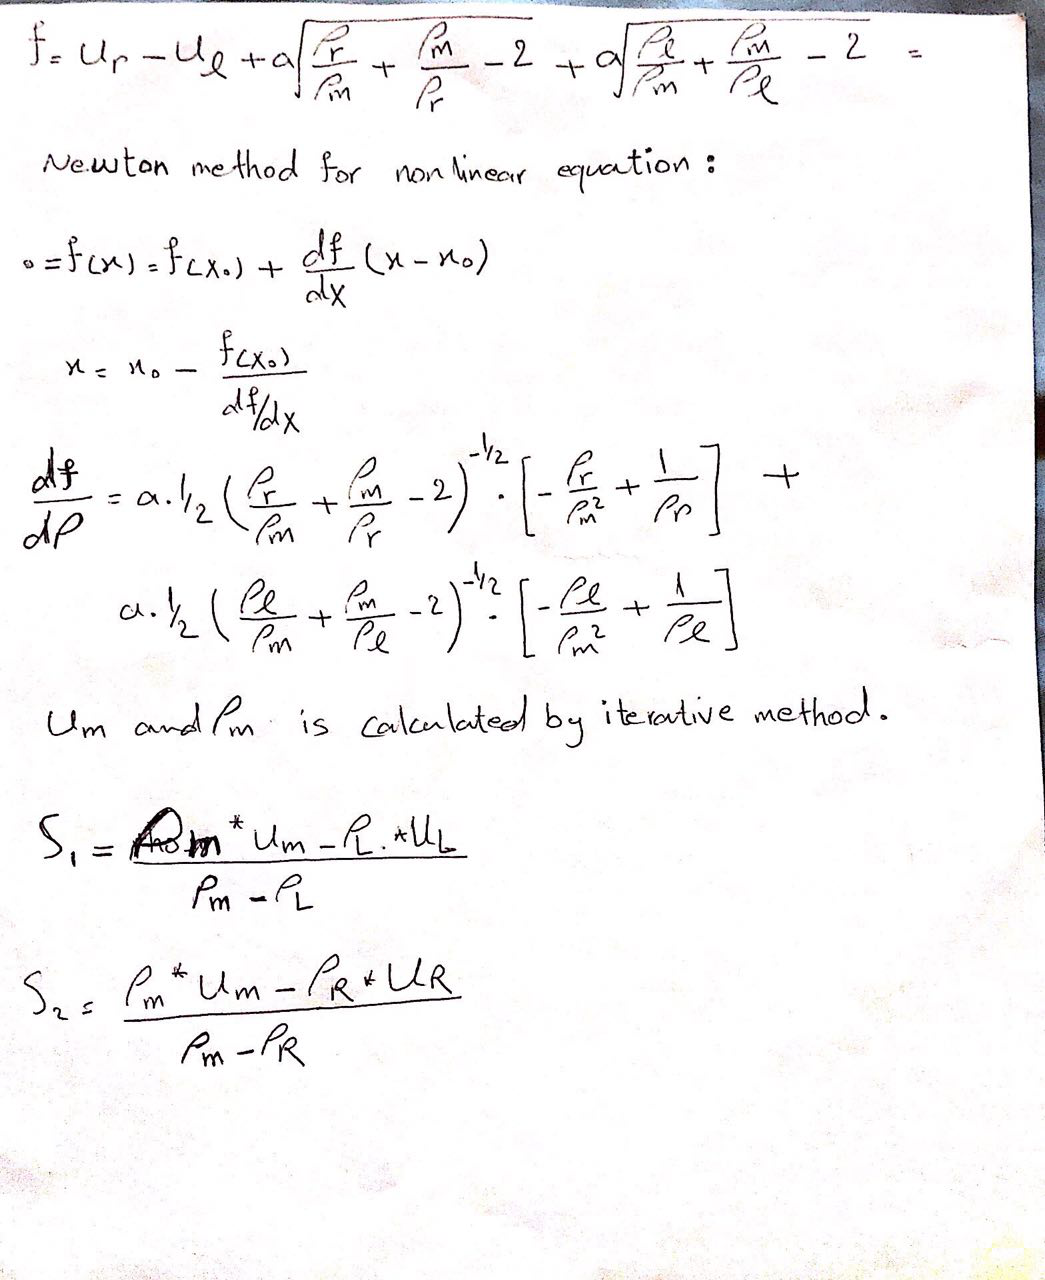 f = u_r - u_l + a√(ρ_r/ρ_m + ρ_m/ρ_r - 2) + a√(ρ_l/ρ_m + ρ_m/ρ_l - 2) =
Newton method for nonlinear equation :
0 = f(x) = f(x_0) + df/dx (x - x_0)
x = x_0 - f(x_0)/(df/dx)
df/dρ = a.1/2 (ρ_r/ρ_m + ρ_m/ρ_r - 2)^(-1/2) . [-ρ_r/ρ_m^2 + 1/ρ_r] +
a.1/2 (ρ_l/ρ_m + ρ_m/ρ_l - 2)^(-1/2) . [-ρ_l/ρ_m^2 + 1/ρ_l]
u_m and ρ_m is calculated by iterative method.
S_1 = (ρ_m * u_m - ρ_L . * u_L)/(ρ_m - ρ_L)
S_2 = (ρ_m * u_m - ρ_R * u_R)/(ρ_m - ρ_R)